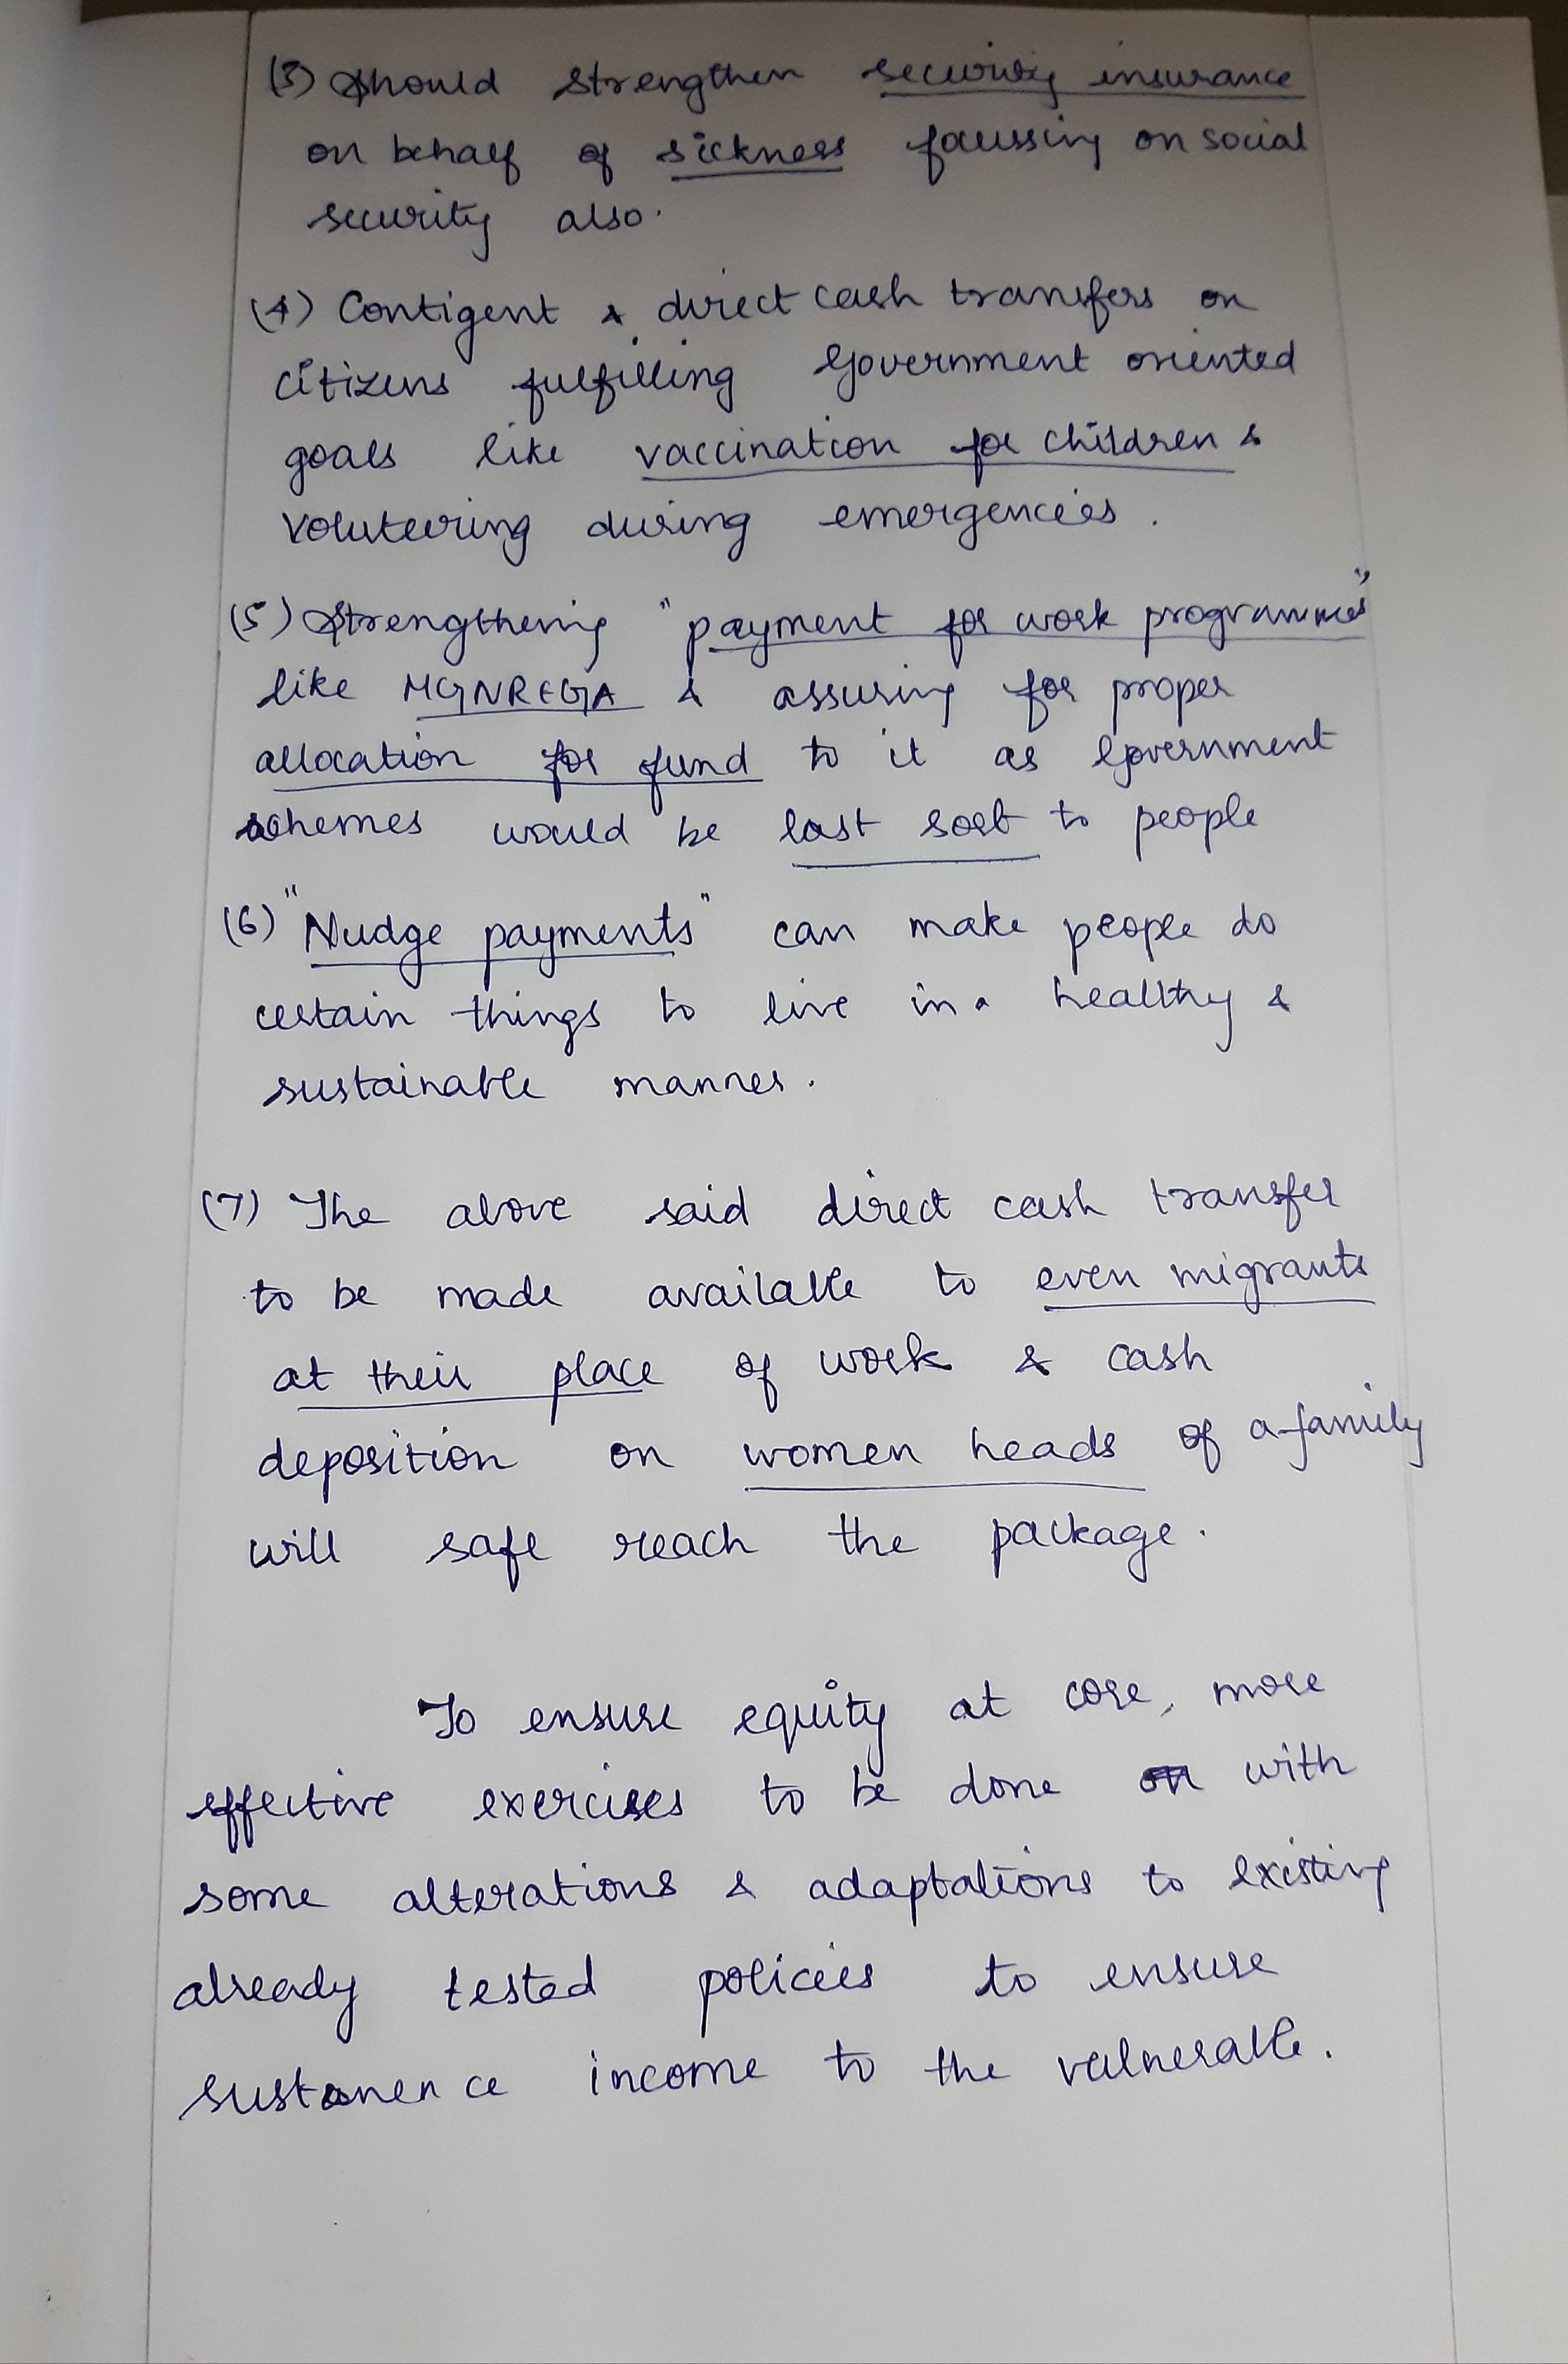 (3) Should strengthen security insurance
on behalf of sickness focussing on social
security also.
(4) Contigent & direct cash transfers on
citizens fulfilling Government oriented
goals like vaccination for children &
voluteering during emergencies.
(5) Strengthenig "payment for work programmes"
like MGNREGA & assuring for proper
allocation for fund to it as Government
schemes would be last sort to people
(6) "Nudge payments" can make people do
certain things to live in a healthy &
sustainable manner.
(7) The above said direct cash transfer
to be made available to even migrants
at their place of work & cash
deposition on women heads of a family
will safe reach the package.
To ensure equity at core, more
effective exercises to be done with
some alterations & adaptations to existing
already tested policies to ensure
sustanence income to the vulnerable.